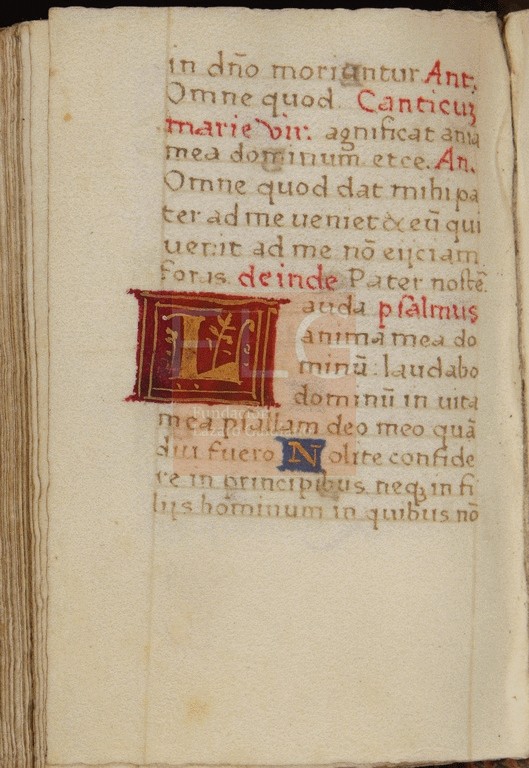 in dño moriuntur Ant.
Omne quod Canticuꝫ
marie vir. agnificat aĩa
mea dominum etce. An.
Omne quod dat mihi pa
ter ad me ueniet & eũ qui
uenit ad me nõ eijciam
foras deinde Pater nostẽ.
Lauda psalmus
anima mea do
minũ: laudabo
dominũ in uita
mea psallam deo meo quã
diu fuero Nolite confide
re in principibus neqꝫ in fi
lijs hominum in quibus nõ
HLG
Fundación
Lázaro